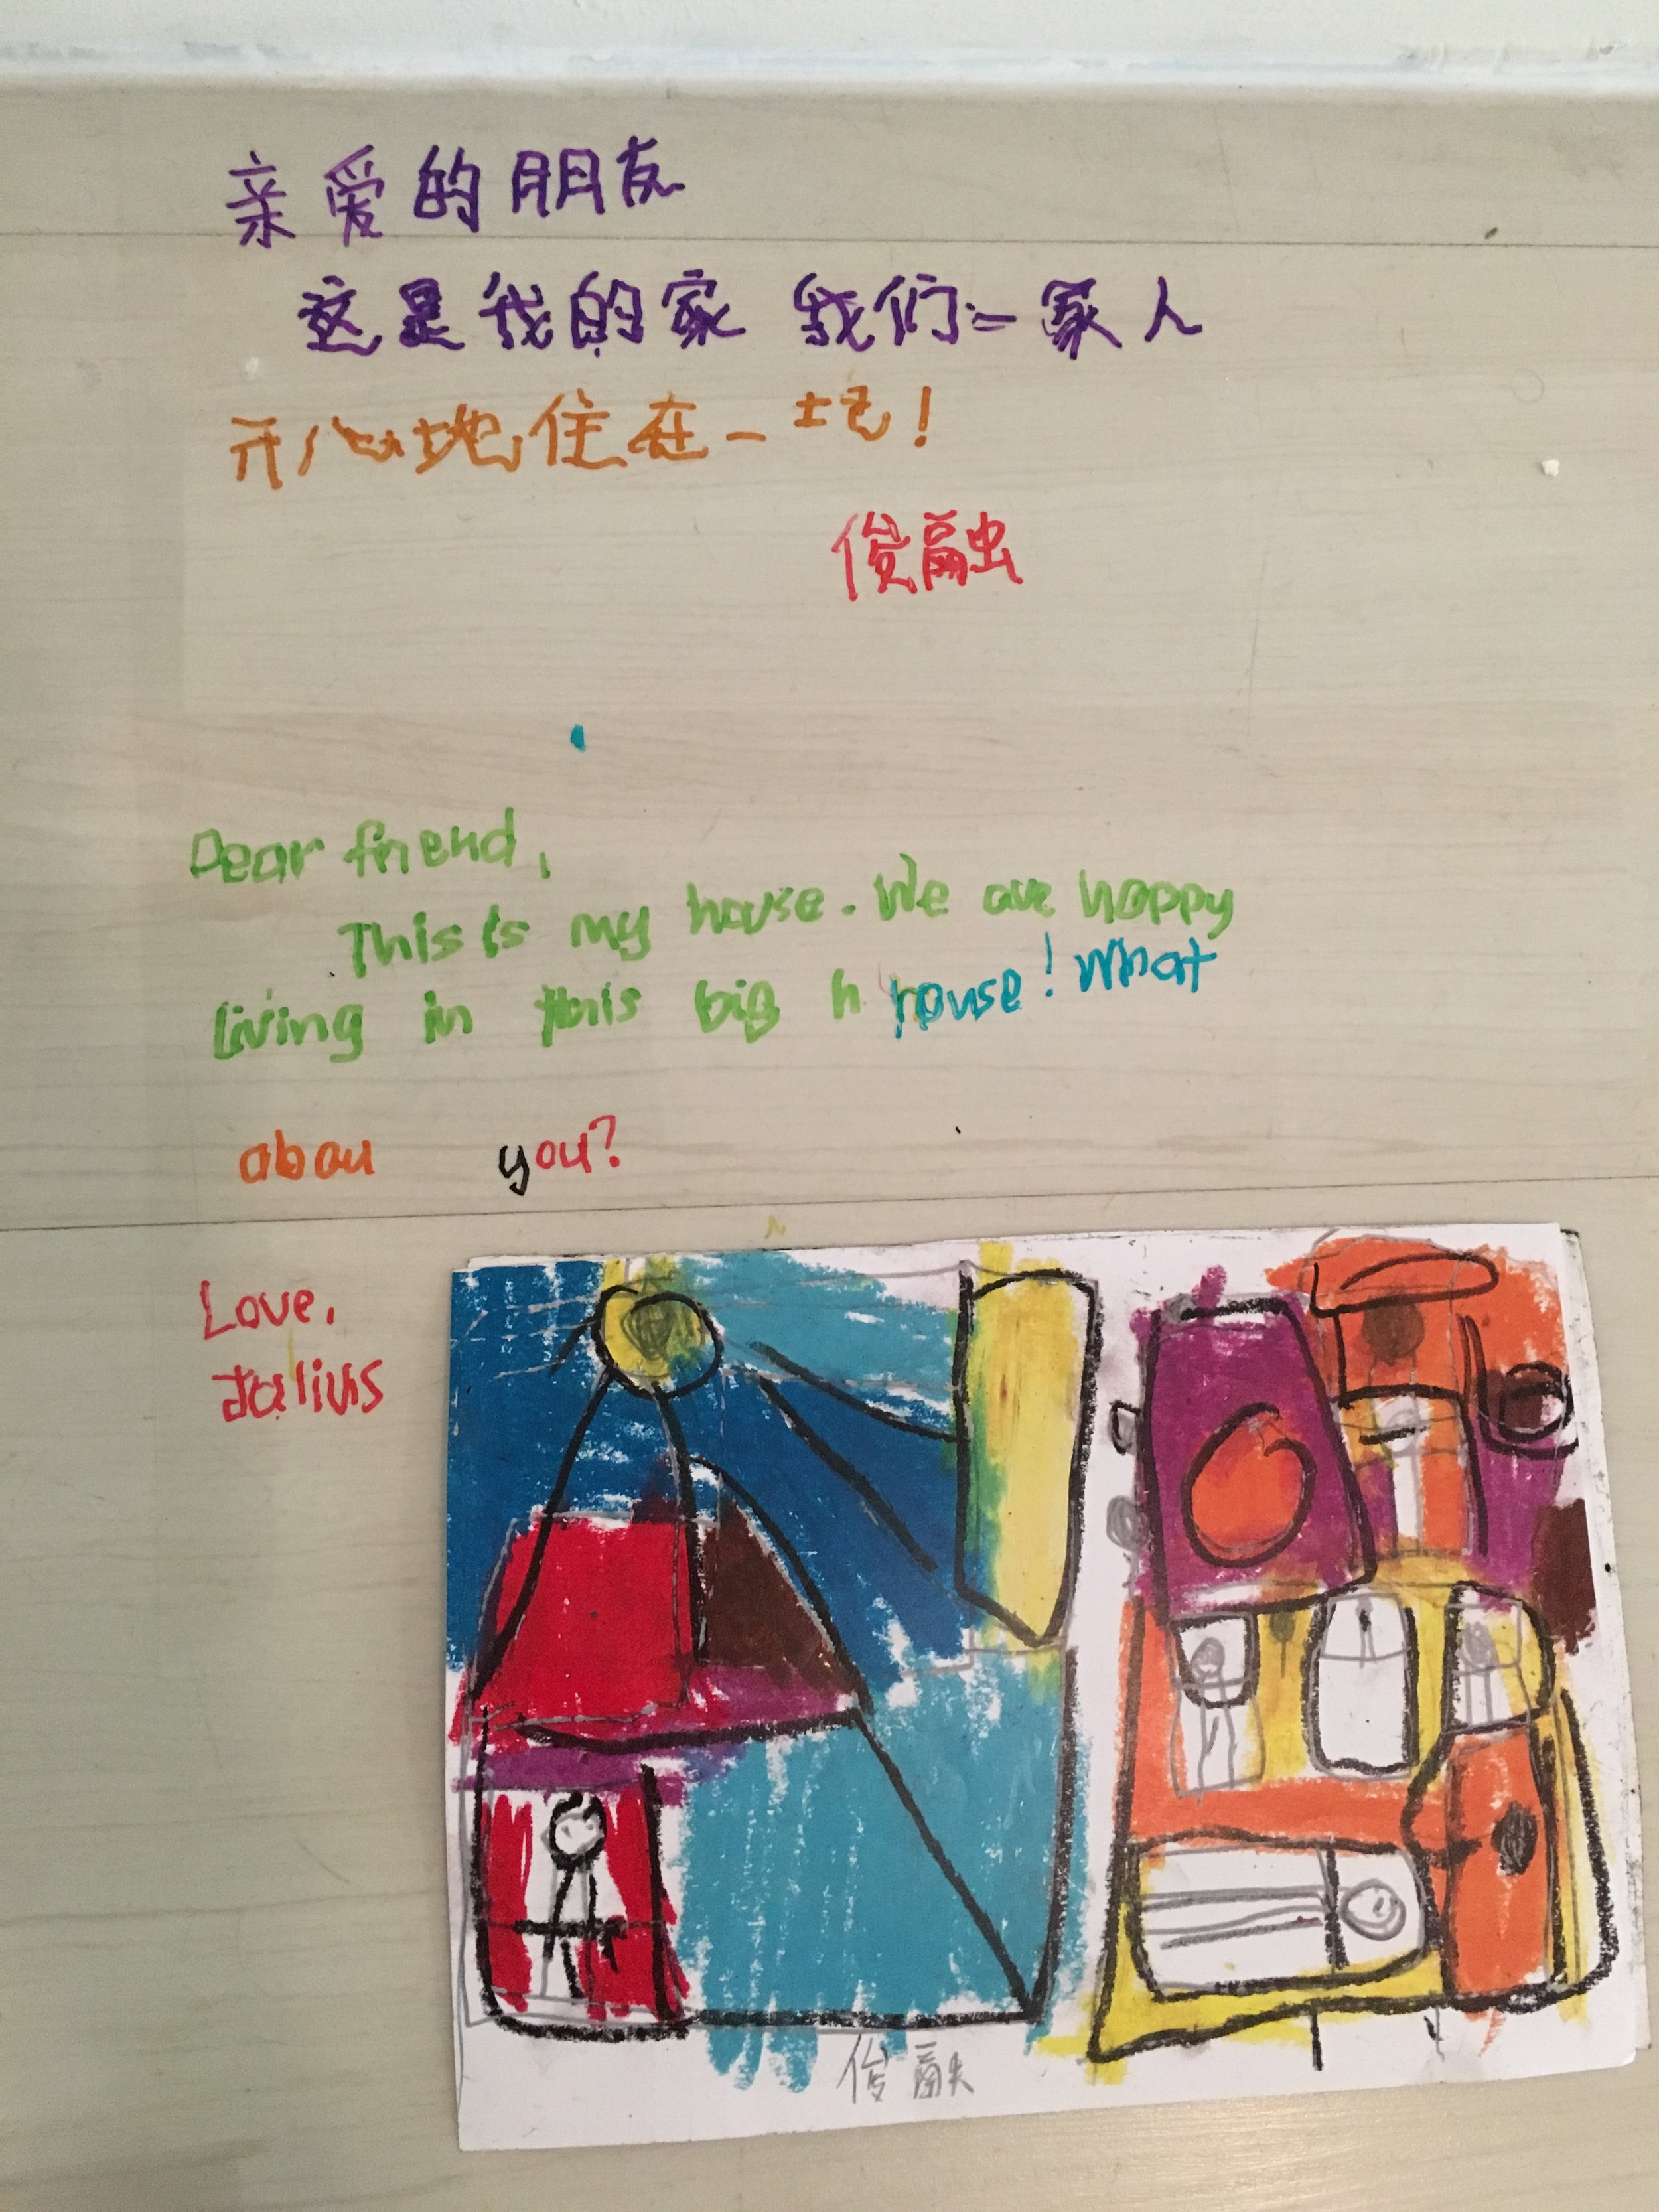 亲爱的朋友
这是我的家 我们一家人
开心地住在一圪!
俊融
Dear friend,
This is my house. We are happy
living in this big h house! What
abou you?
Love,
Jalius
俊融